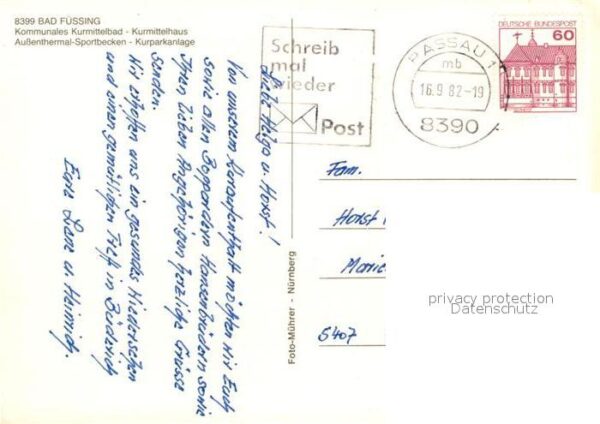 8399 BAD FÜSSING
Kommunales Kurmittelbad - Kurmittelhaus
Außenthermal-Sportbecken - Kurparkanlage
Schreib
mal
wieder
Post
PASSAU 1
mb
16.9.82-19
8390
DEUTSCHE BUNDESPOST
60
Liebe Helga u. Horst!
Von unserem Kuraufenthalt möchten wir Euch
sowie allen Bopparder Hansenbrüdern sowie
Ihren lieben Angehörigen herzliche Grüsse
senden.
Wir erhoffen uns ein gesundes Wiedersehen
und einen gemütlichen Treff in Büderich
Eure Lene u. Heinrich.
Foto-Mührer - Nürnberg
Fam.
Horst
5407
privacy protection
Datenschutz